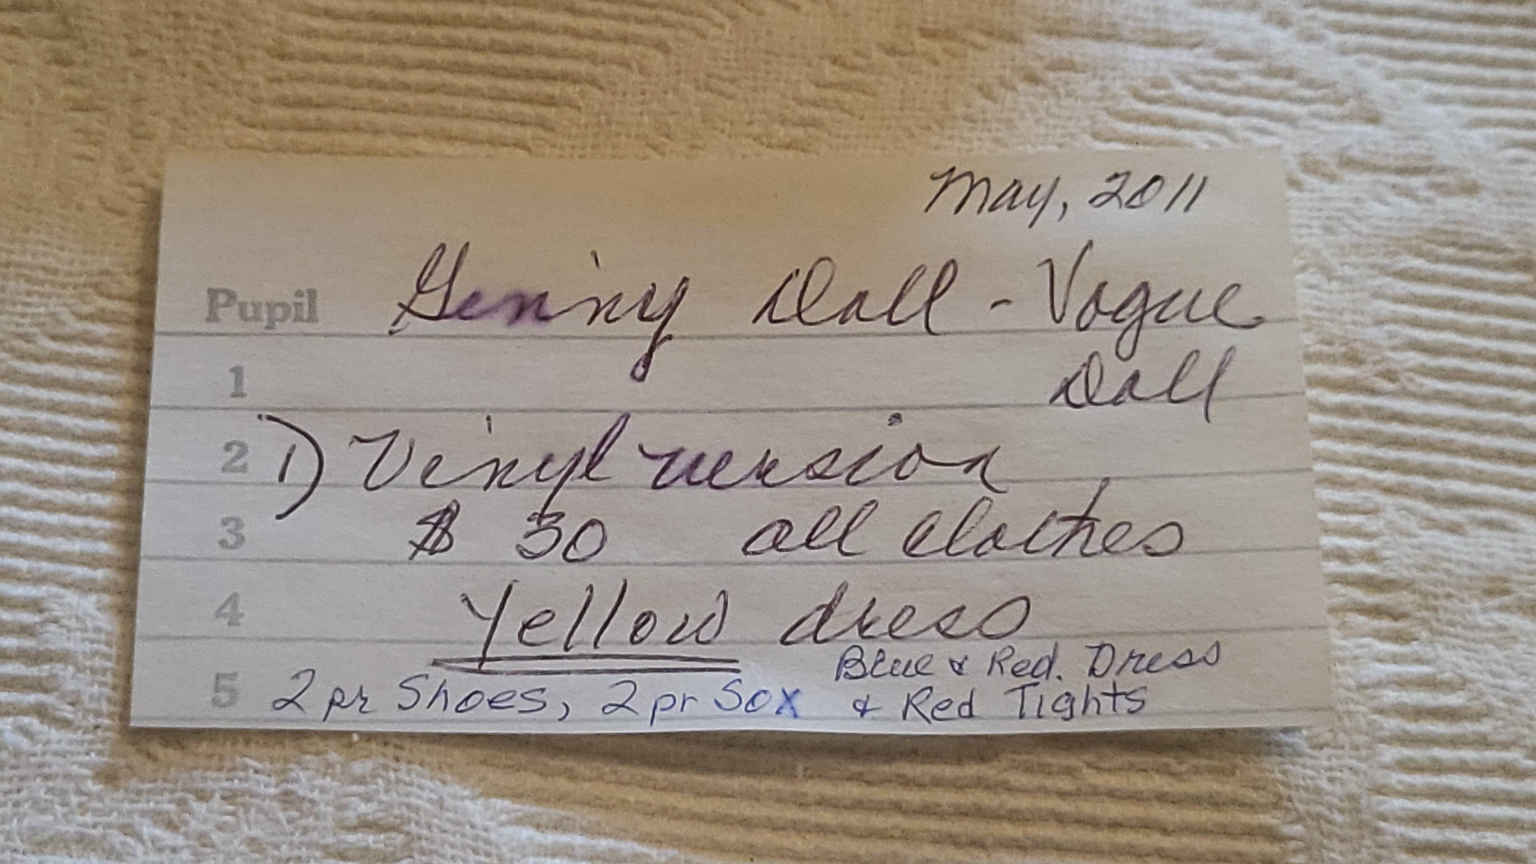 May, 2011
Pupil Ginny Doll - Vogue
1 Doll
2 1) Vinyl version
3 $ 30 all clothes
4 Yellow dress
Blue & Red. Dress
5 2 pr Shoes, 2 pr Sox & Red Tights